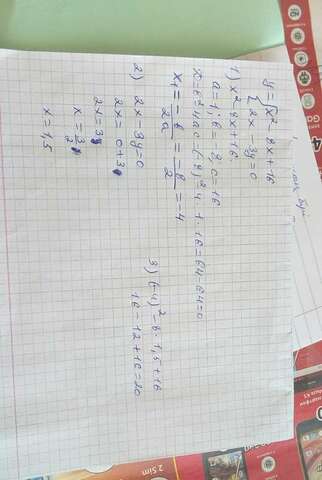 y = { x² - 8x + 16
{ 2x - 3y = 0
1) x² 8x + 16
a = 1; b = -8, c = 16
D = b² - 4ac = (-8)² 4 · 1 · 16 = 64 - 64 = 0
x₁ = -b/2a = -8/2 = -4
2) 2x - 3y = 0
2x = 0 + 3
2x = 3
x = 3/2
x = 1,5
3) (-4)² - 8 · 1,5 + 16
16 - 12 + 16 = 20
2.Sim